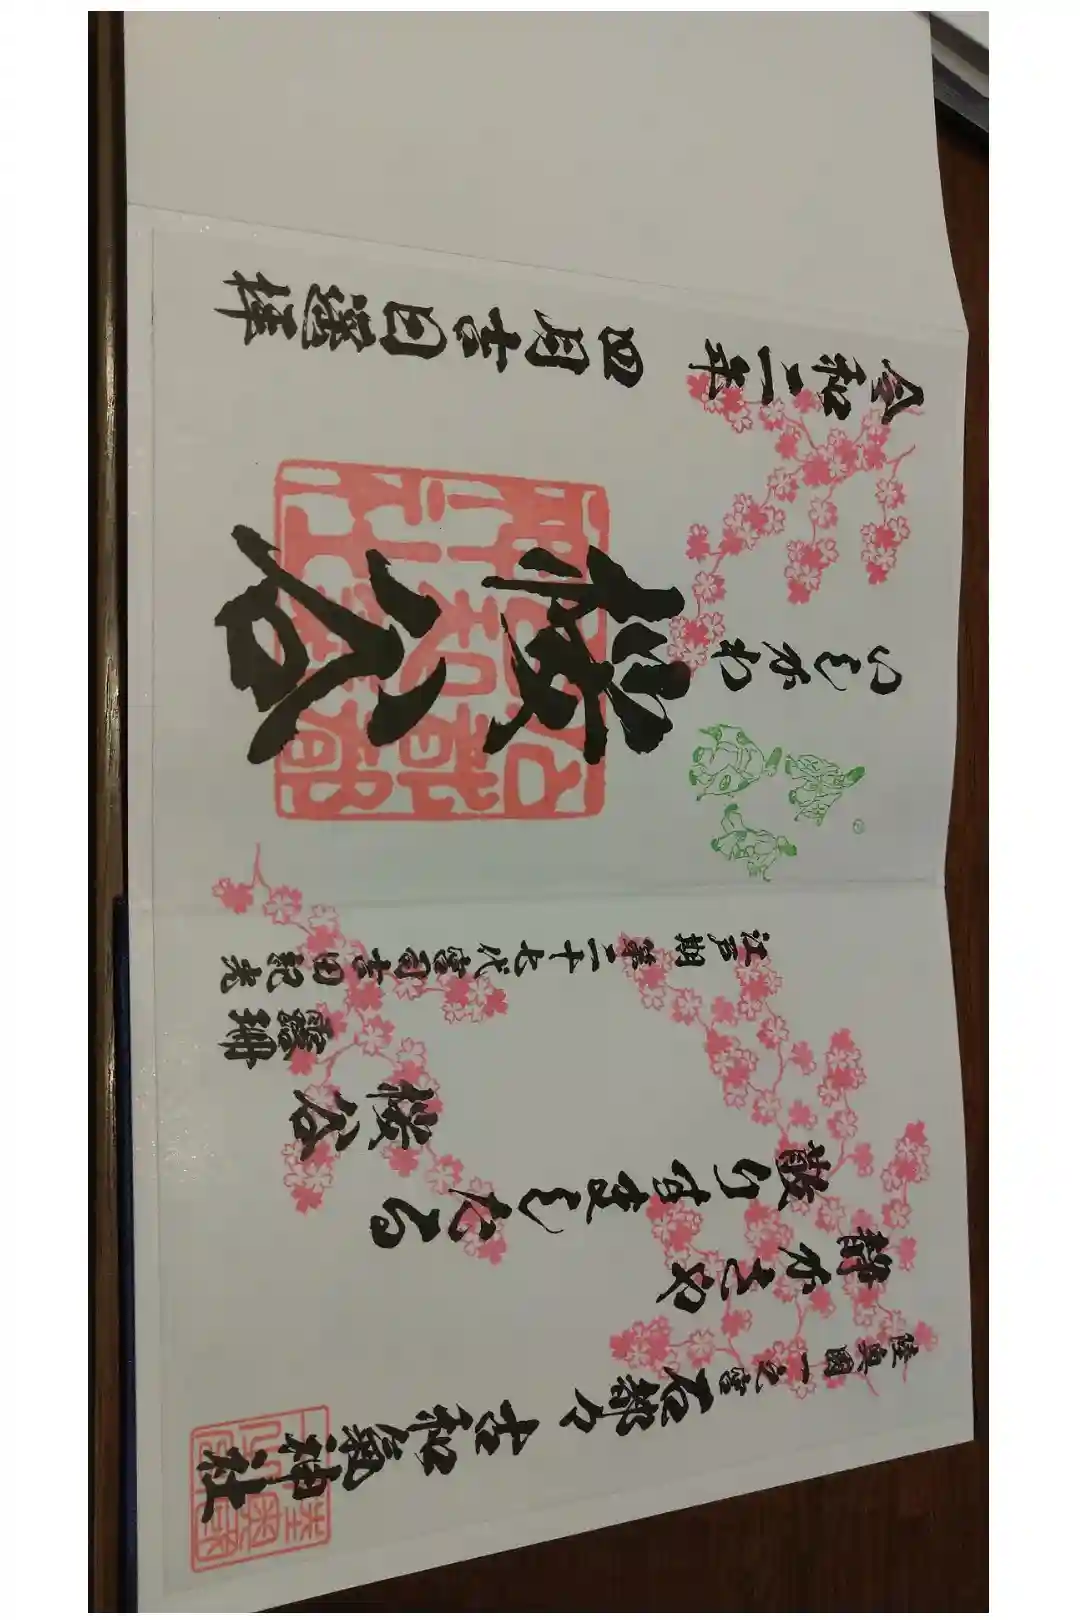 陸奥國一之宮 石都々古和氣神社
静かさや
散りすましたる
櫻谷
江戸期 第二十七代宮司吉田
いしかわ
櫻谷
令和二年 四月吉日遙拝